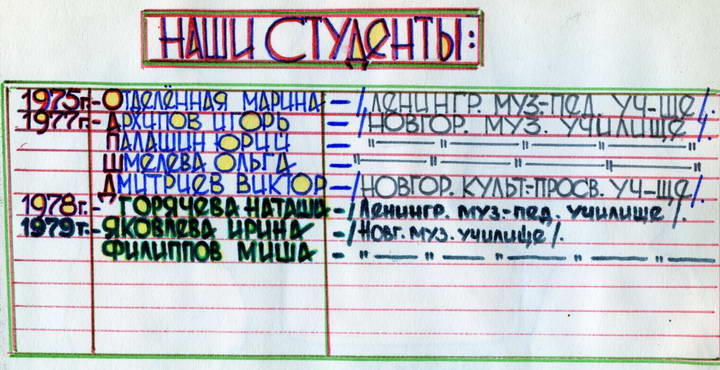 НАШИ СТУДЕНТЫ:
1975г.- ОТДЕЛЁННАЯ МАРИНА - /ЛЕНИНГР. МУЗ-ПЕД. УЧ-ЩЕ/.
1977г.- АРХИПОВ ИГОРЬ - /НОВГОР. МУЗ. УЧИЛИЩЕ/.
ПАЛАШИН ЮРИЙ - " — " — " — " — " — "
ШМЕЛЕВА ОЛЬГА - " — " — " — " — "
ДМИТРИЕВ ВИКТОР - /НОВГОР. КУЛЬТ-ПРОСВ. УЧ-ЩЕ/.
1978г.- ГОРЯЧЕВА НАТАША - /ЛЕНИНГР. МУЗ.-ПЕД. УЧИЛИЩЕ/.
1979г.- ЯКОВЛЕВА ИРИНА - /НОВГ. МУЗ. УЧИЛИЩЕ/.
ФИЛИППОВ МИША - " — " — " — " — " — "